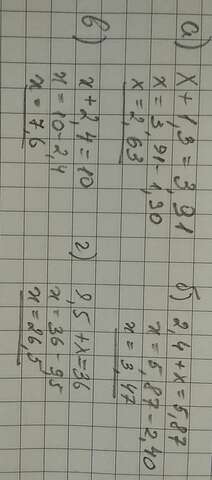 а)
X + 1,3 = 3,91
x = 3,91 - 1,30
x = 2,63
б) 2,4 + x = 5,87
x = 5,87 - 2,40
x = 3,47
в)
x + 2,4 = 10
x = 10 - 2,4
x = 7,6
г) 9,5 + x = 36
x = 36 - 9,5
x = 26,5